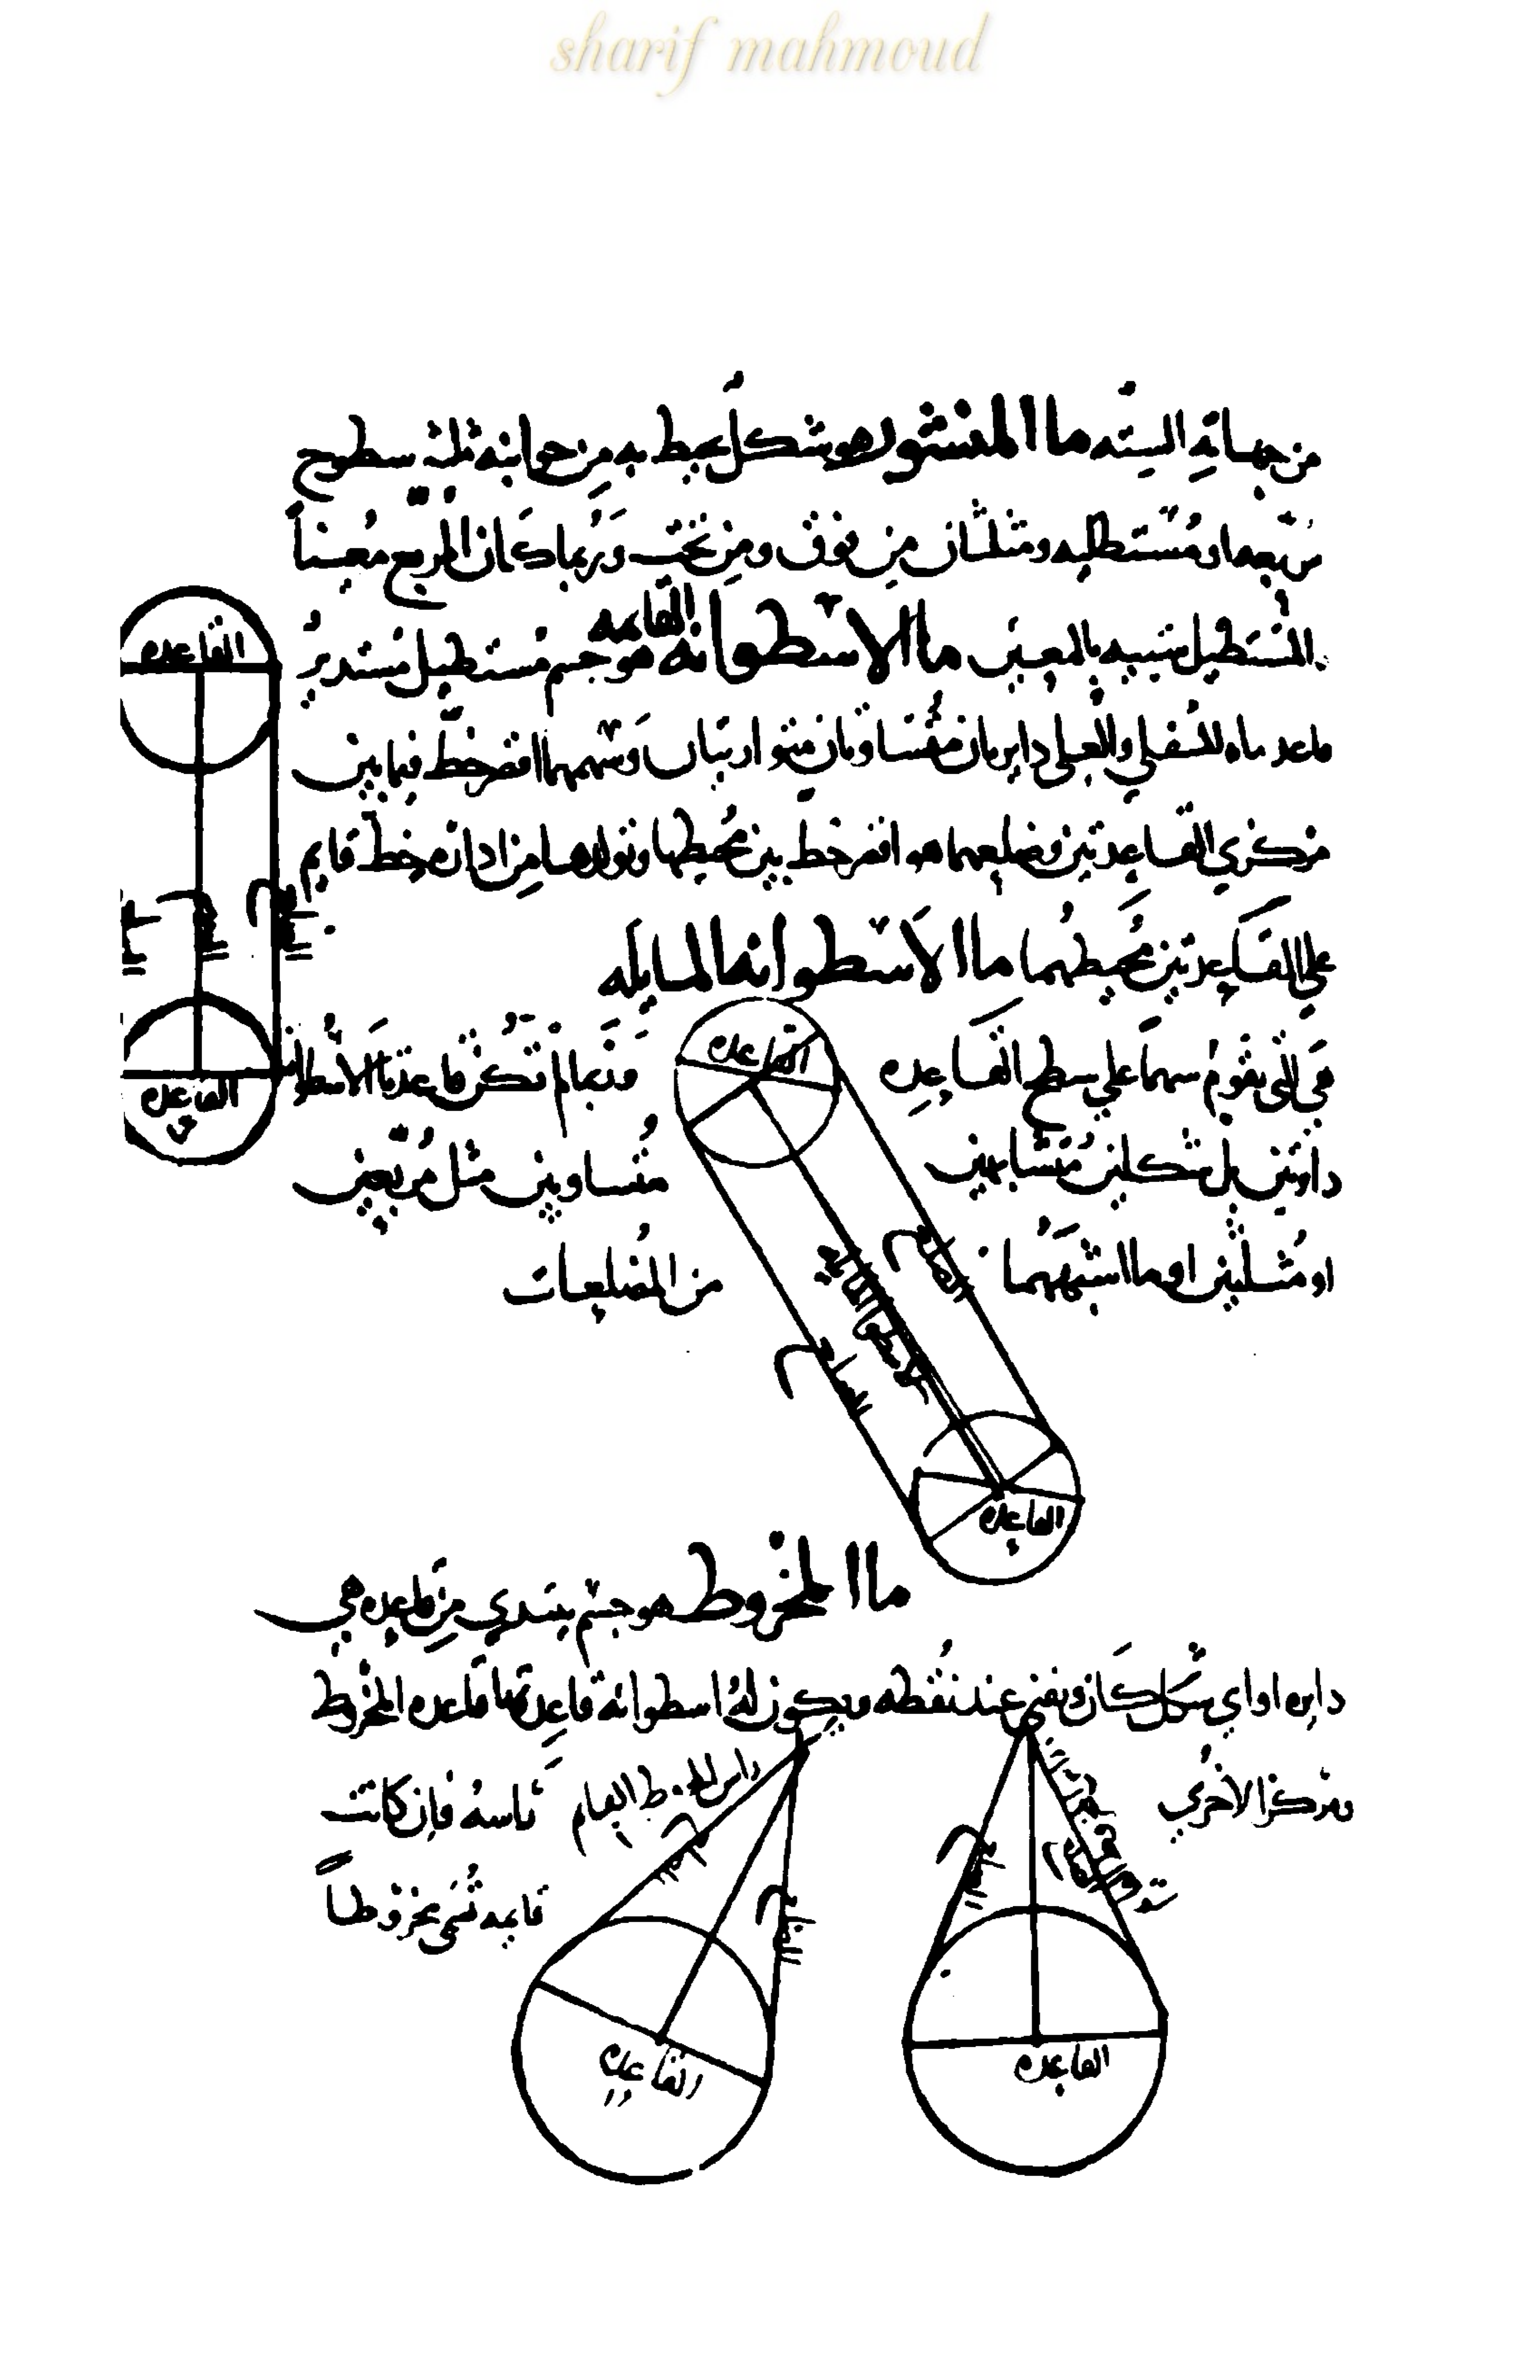 sharif mahmoud
من جهاته الستّه ما المنشور هو شكل يحيط به من جوانبه ثلثه سطوح
مربعه او مُستطيله ومثلثان من فوق ومن تحت وَرُبما كان المربع مُعيناً
المستطيل شبيه بالمعين ما الاسطوانه القايمه هو جسم مستطيل مُستدير
قاعدتاه السفلي والعليا دايرتان مُتساويتان متوازيتان وَسَهمها اقصر خطّ فيما بين
مركزي القاعدتين وضلعها هو اقصر خط بين مُحيطيها وتولدها من ادارة خط قايم
علي القاعدتين مُحيطهما ما الاسطوانه المايله
هي التي يقوم سهمها علي سطح القاعده
وَربما لم تكن قاعدتا الاسطوانه
دايرتين بل شكلين مُتشابهين
مُتساويين مثل مُربّعين
او مُثلثين او ما اشبَههُما
من المُضلعات
القاعده
القاعده
القاعده
القاعده
ما المخروط هو جسم يبتدي من قاعده هي
دايره او اي شكل كان ويفني عند نُقطه ويكون لهُ اسطوانه قاعدتها قاعده المخروط
ومركز الاخري
راسهُ فان كانت
قايمه سُمي مخروطاً
راس المخروط القايم
القاعده
القاعده